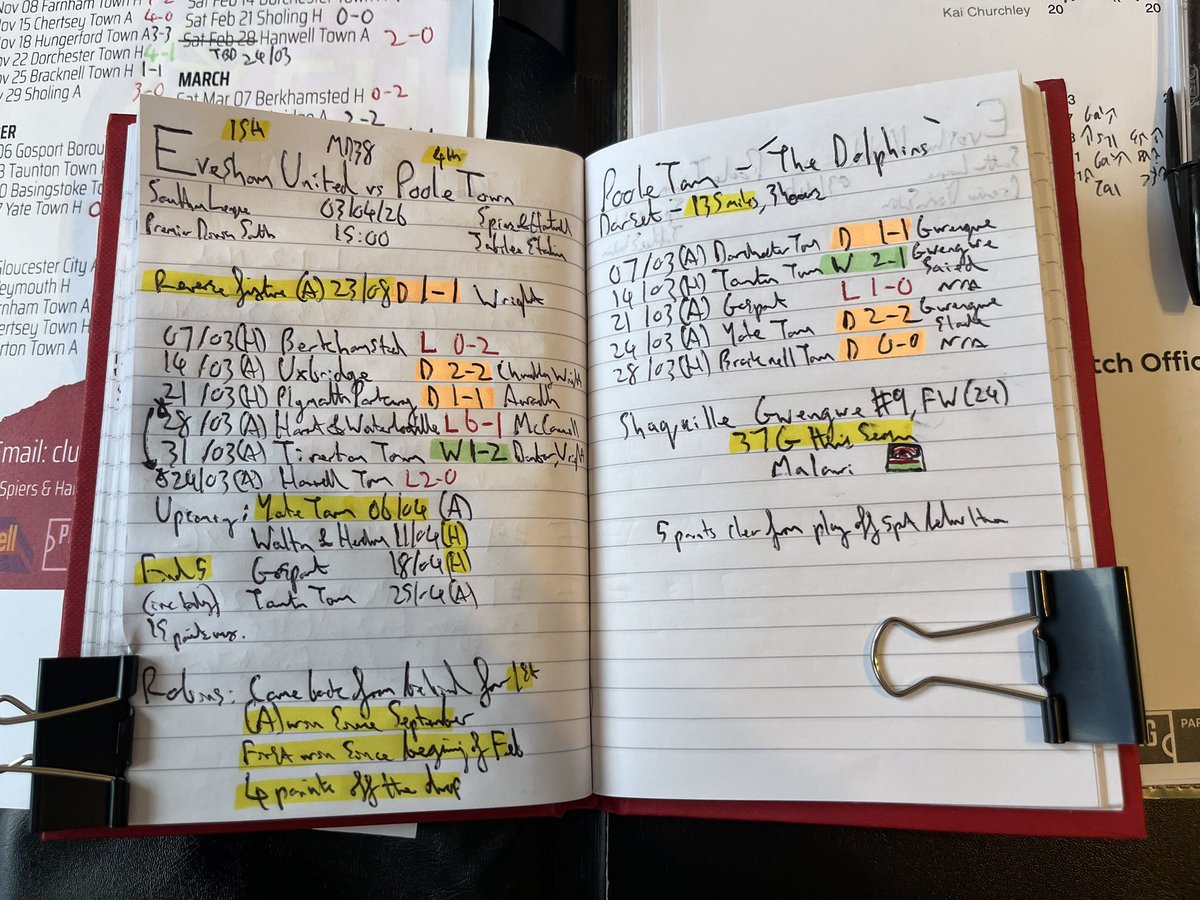 Nov 08 Farnham Town H
Nov 15 Chertsey Town A 4-0
Nov 18 Hungerford Town A 3-3
Nov 22 Dorchester Town H 4-1
Nov 25 Bracknell Town H 1-1
Nov 29 Sholing A 3-0
06 Gosport Borou
Taunton Town
Basingstoke To
Yate Town H
Gloucester City A
eymouth H
rnham Town A
ertsey Town H
rton Town A
Email: clu
Spiers & Ha
Sat Feb 14 Dorchester Town
Sat Feb 21 Sholing H 0-0
Sat Feb 28 Hanwell Town A 2-0
TBD 24/03
MARCH
Sat Mar 07 Berkhamsted H 0-2
2-2
Kai Churchley 20 20
tch Offic
PAR
15th MD38 4th
Evesham United vs Poole Town
Southern League 03/04/26 Spiers & Hartwell
Premier Division South 15:00 Jubilee Stadium
Reverse fixture (A) 23/08 D 1-1 Wright
07/03 (H) Berkhamsted L 0-2
14/03 (A) Uxbridge D 2-2 Wright
21/03 (H) Plymouth Parkway D 1-1
28/03 (A) Havant & Waterlooville L 6-1 McConnell
31/03 (A) Tiverton Town W 1-2 Wright
24/03 (A) Hanwell Town L 2-0
Upcoming: Yate Town 06/04 (A)
Walton & Hersham 11/04 (H)
Final 5 Gosport 18/04 (H)
(inc today) Taunton Town 25/04 (A)
15 points
Robins: Came back from behind for 1st
(A) won since September
First won since begining of Feb
4 points off the drop
Poole Town - 'The Dolphins'
Dorset - 135 miles, 3 hours
07/03 (A) Dorchester Town D 1-1 Gwengwe
14/03 (H) Taunton Town W 2-1 Gwengwe
Saied
21/03 (A) Gosport L 1-0 N/A
24/03 (A) Yate Town D 2-2 Gwengwe
28/03 (H) Bracknell Town D 0-0 N/A
Shaquille Gwengwe #9, FW (24)
37 G this Season
Malawi
5 points clear from play off spot below them